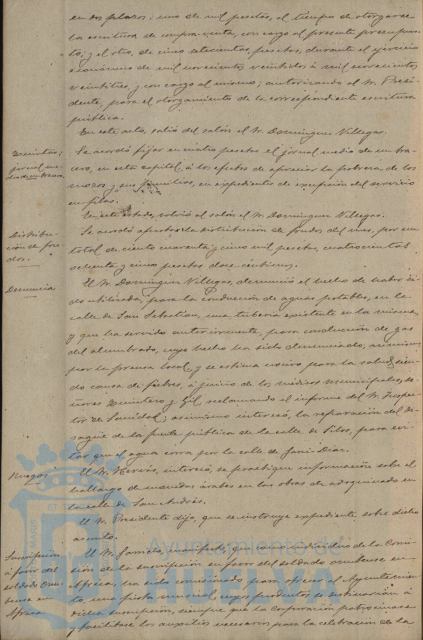 en dos plazos; uno de mil pesetas, al tiempo de otorgarse
la escritura de compra-venta, con cargo al presente presupues-
to; y el otro, de cinco setecientas, pesetas, durante el ejercicio
económico de mil novecientos veintidós á mil novecientos
veintitres, y con cargo al mismo; autorizando al Sr. Presi-
dente, para el otorgamiento de la correspondiente escritura
pública.
En este acto, salió del salón el Sr. Dominguez Villegas.
Quintas;
jornal me-
dio de un bracero.
Se acordó fijar en cuatro pesetas el jornal medio de un bra-
cero, en esta capital, á los efectos de apreciar la pobreza de los
mozos y sus familias, en expedientes de excepción del servicio
en filas.
En este estado, volvió al salón el Sr. Dominguez Villegas.
Distribu-
ción de fon-
dos.
Se acordó aprobar la distribución de fondos del mes, por un
total de ciento cuarenta y cinco mil pesetas, cuatrocientas
ochenta y cinco pesetas doce céntimos.
Denuncia
El Sr. Dominguez Villegas, denunció el hecho de haber si-
do utilizada, para la conducción de aguas potables, en la
calle de San Sebastian, una tubería existente en la misma,
y que ha servido anteriormente, para conducción de gas
del alumbrado, cuyo hecho ha sido denunciado, asimismo
por la prensa local, y se estima nocivo para la salud, sien-
do causa de fiebres, á juicio de los médicos municipales, se-
ñores Quintero y Gil, reclamando el informe del Sr. Inspec-
tor de Sanidad; asimismo interesó, la reparación del de-
sagüe de la fuente pública de la calle de Silos, para evi-
tar que el agua corra por la calle de
Ruegos
El Sr. Hervás, interesó, se practique información sobre el
hallazgo de monedas árabes en las obras de adoquinado en
la calle de San Andrés.
El Sr. Presidente dijo, que se instruye expediente, sobre dicho
asunto.
Suscripción
á favor del
soldado
en
Africa
El Sr. manifestó, que como individuo de la Comi-
sión de la suscripción en favor del soldado en
Africa, ha sido comisionado para ofrecer al Ayuntamien-
to, una fiesta cuyos productos se destinarían á
dicha suscripción, siempre que la Corporación patrocinase
y facilitase los auxilios necesarios para la celebración de la
Ayuntamiento de